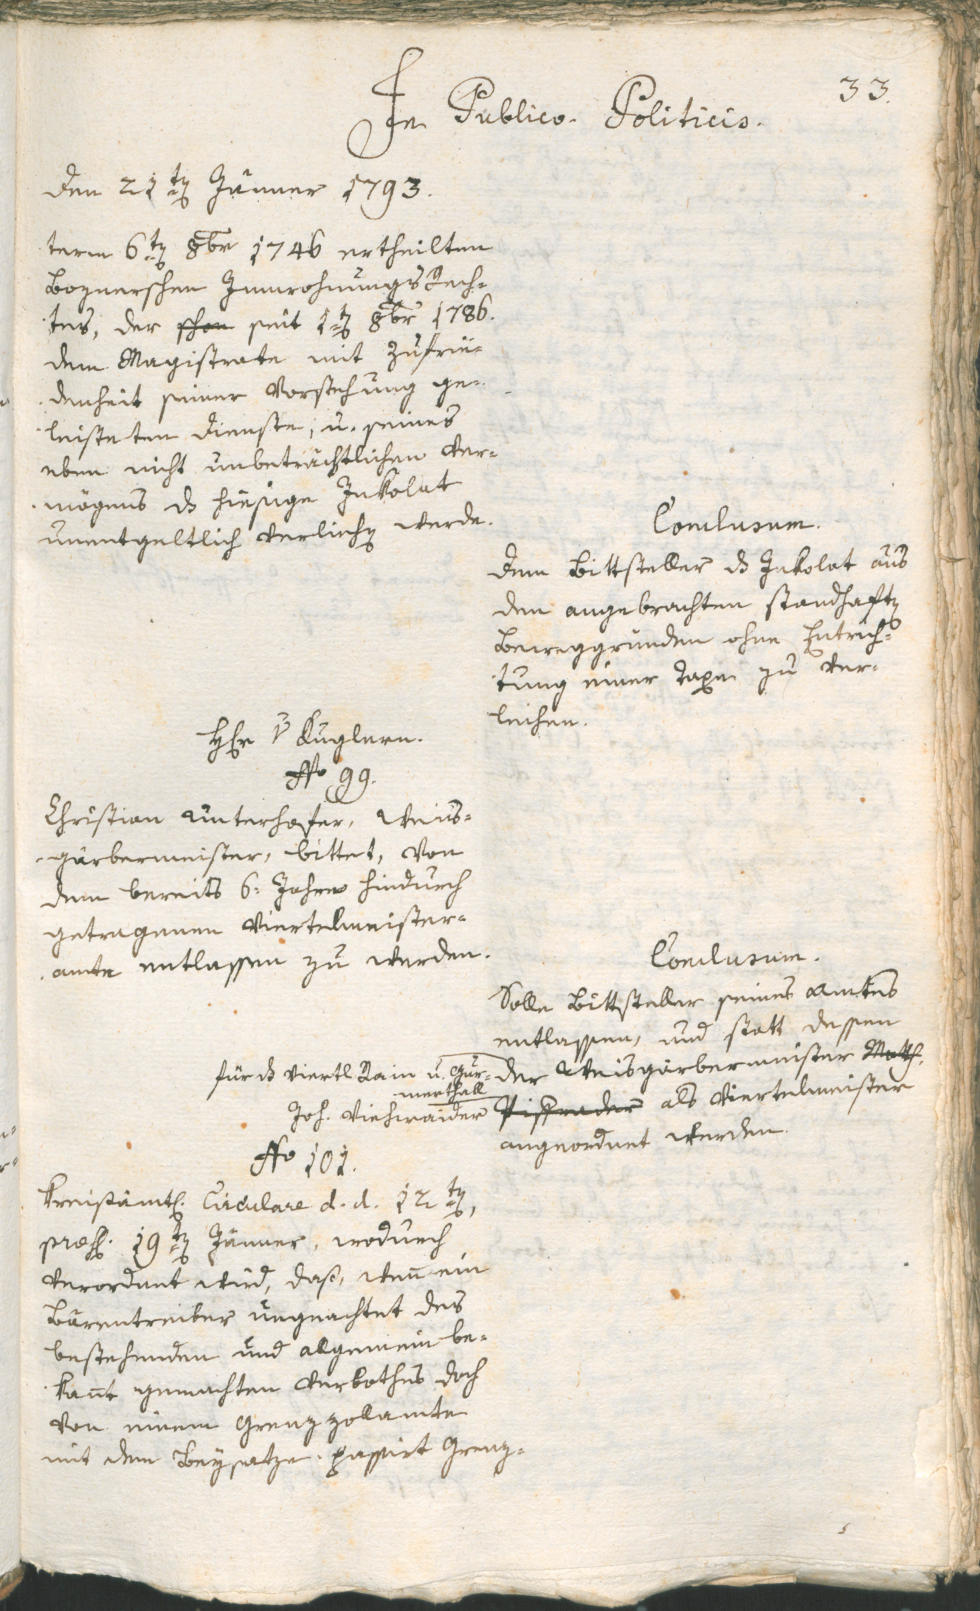 33.
In Publico-Politicis.
Den 21ten Jänner 1793.
term 6ten 8br 1746 ertheilten
Boznerschen Innwohnungs Rech-
tes, der schon seit 1ten 8br 1786.
dem Magistrate mit Zufrie-
denheit seiner Vorstehung ge-
leisteten Dienste, u. seines
eben nicht unbeträchtlichen Ver-
mögens ds hiesige Inkolat
unentgeltlich verliehen werde.
Conclusum.
Dem Bittsteller ds Inkolat aus
den angebrachten standhaften
Beweggründen ohne Entrich-
tung einer Taxe zu ver-
leihen.
Hr v Kuglern.
No 99.
Christian Unterhofer, Weis-
gärbermeister, bittet, von
dem bereits 6: Jahre hindurch
getragenen Viertelmeister-
amte entlassen zu werden.
Conclusum.
Solle Bittsteller seines Amtes
entlassen, und statt dessen
der Weisgärbermeister Math.
Pissrader als Viertelmeister
angeordnet werden.
für ds Viertl Rain u. Gur-
merthall
Joh. Viehwaider
No 101.
Kreisämtl. Circulare d. d. 12ten,
præs. 19ten Jänner, wodurch
verordnet wird, daß, wen ein
Bärentreiber ungeachtet des
bestehenden und allgemein be-
kant gemachten Verbothes doch
von einem Grenzzollamte
mit dem Beysatze: passirt Grenz-